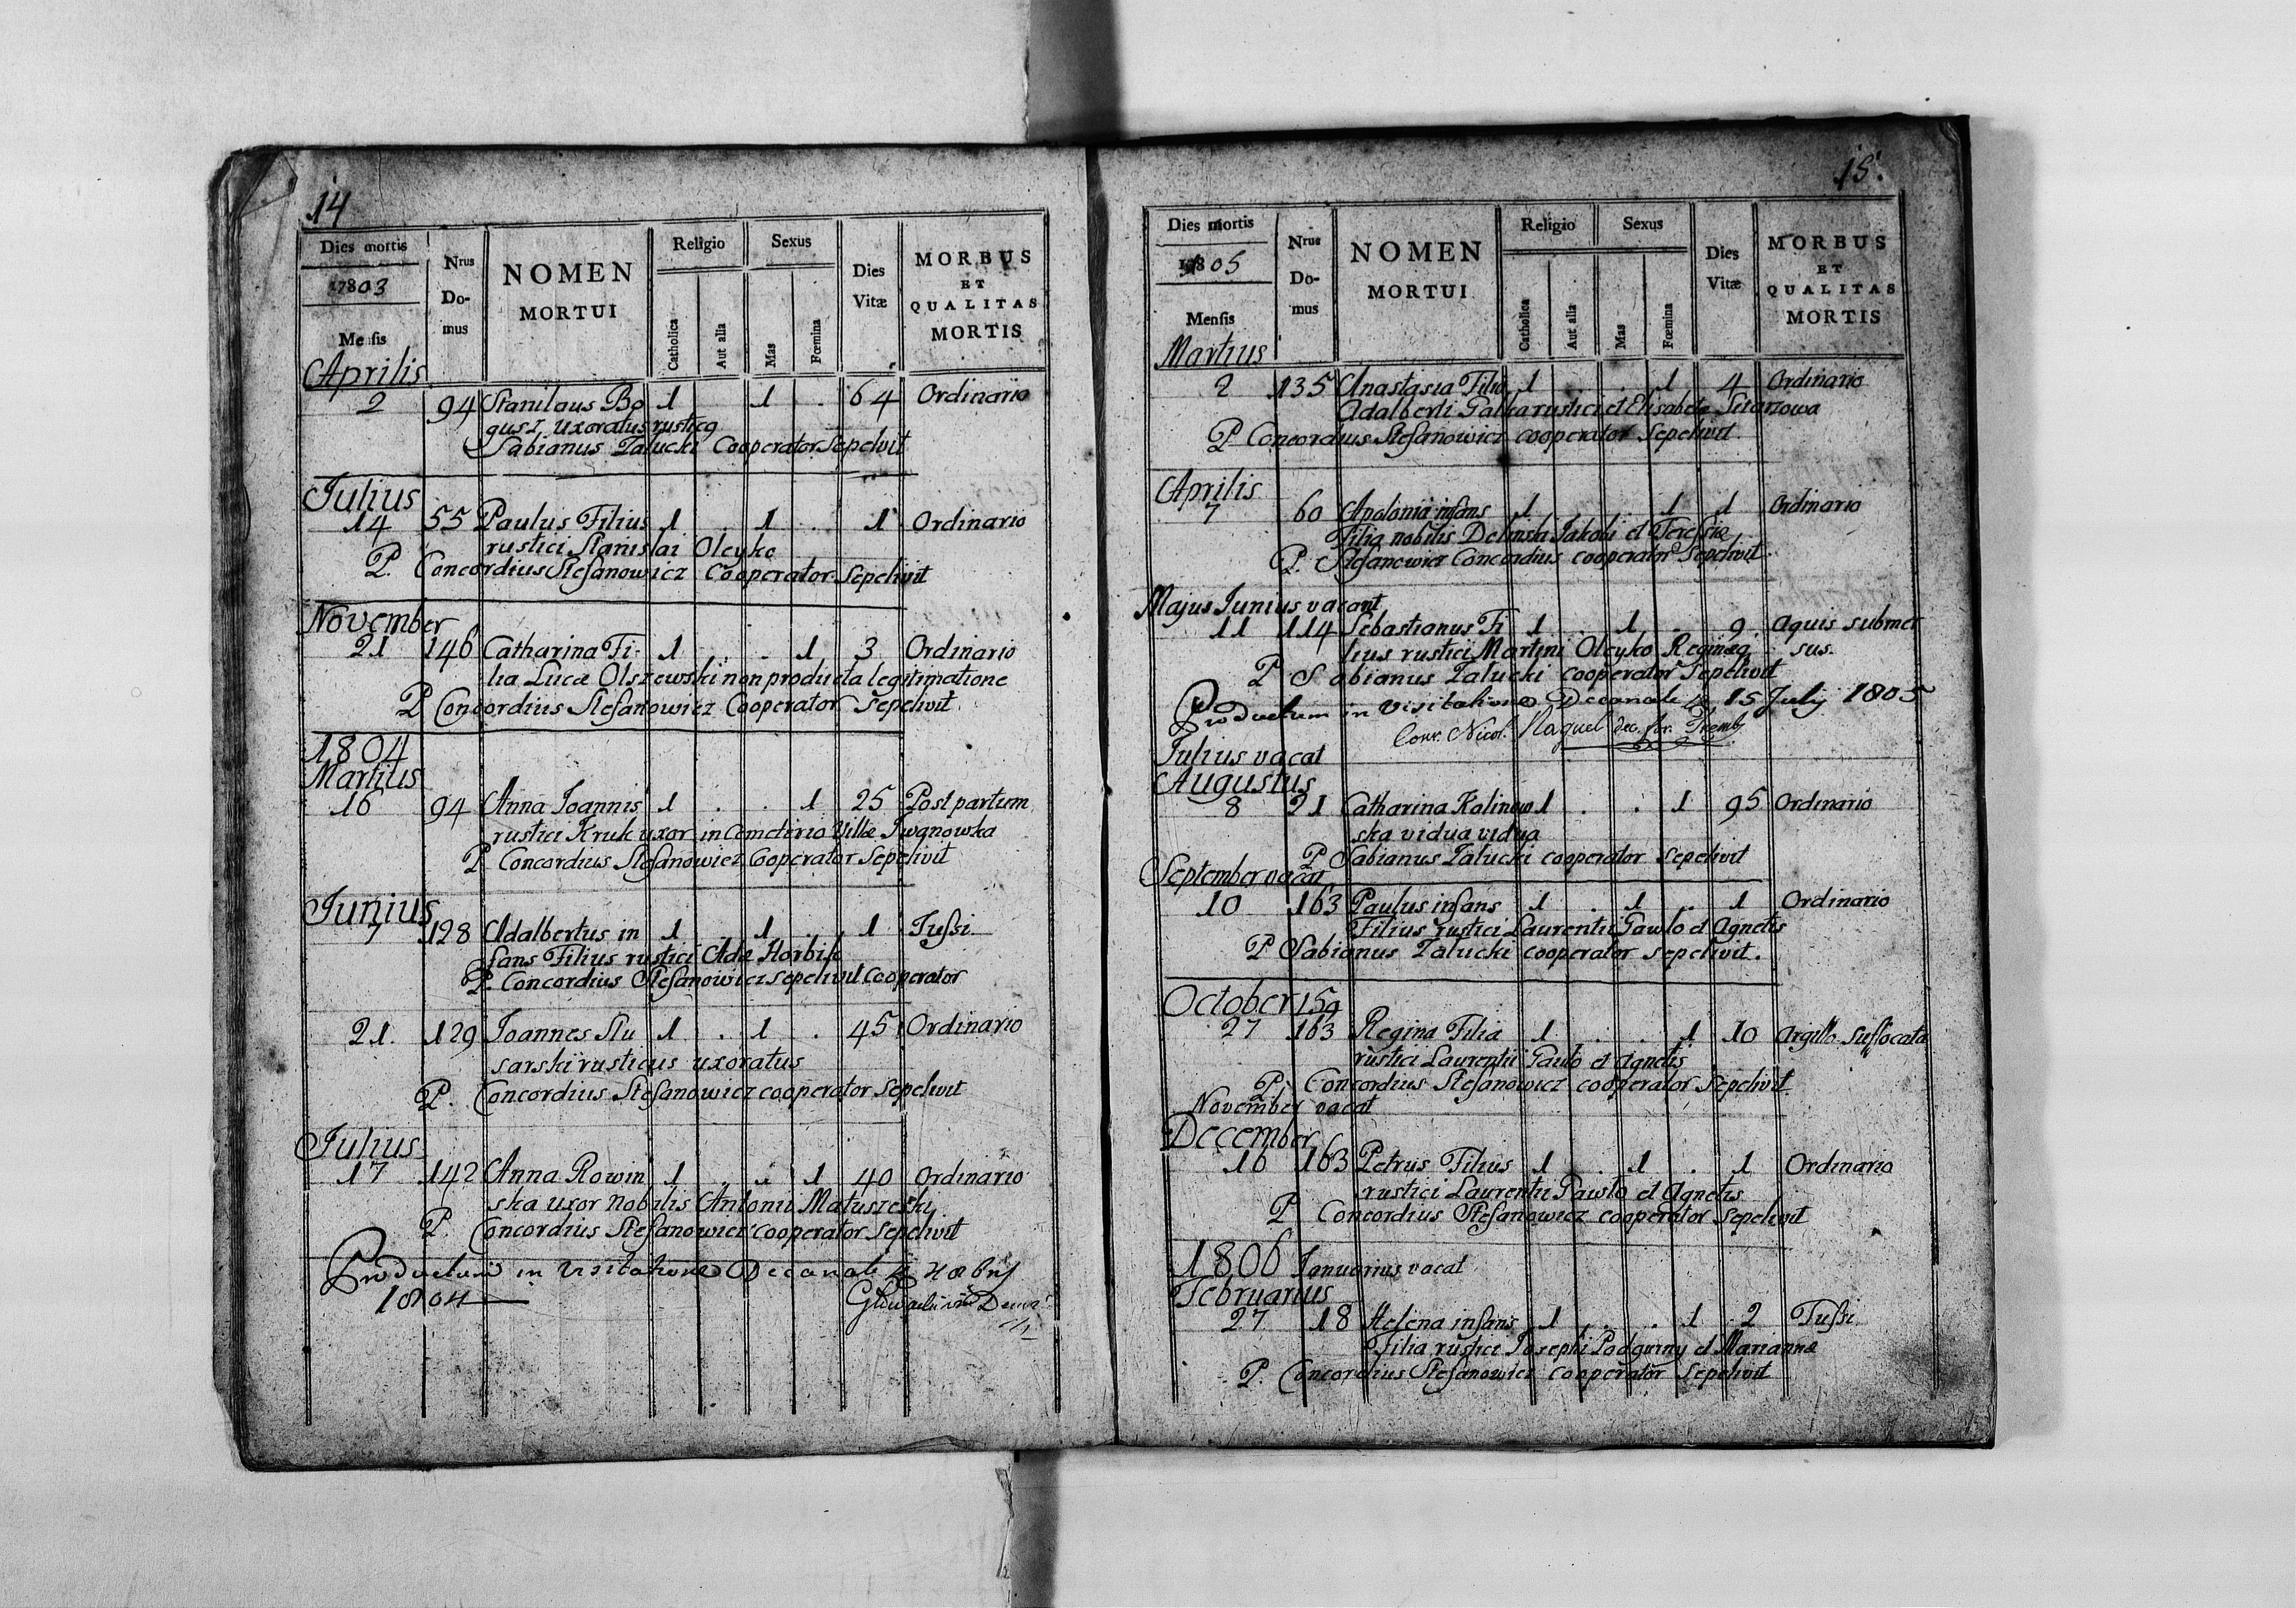 14
Dies mortis
17803
Mensis
Nrus
Do-
mus
NOMEN
MORTUI
Religio
Catholica
Aut alia
Sexus
Mas
Fœmina
Dies
Vitæ
MORBUS
ET
QUALITAS
MORTIS
Aprilis
2 94 Stanilaus Bo 1 1 . 64 Ordinario
gusz uxoratus rusticq
Sabianus Zalucki Cooperator Sepelivit
Julius
14 55 Paulus Filius 1 . 1 . 1 Ordinario
rustici Stanislai Oleyko
P. Concordius Stefanowicz Cooperator Sepelivit
November
21 146 Catharina Fi- 1 . . 1 3 Ordinario
lia Lucæ Olszewski non producta legitimatione
P Concordius Stefanowicz Cooperator Sepelivit
1804
Martius
16 94 Anna Joannis 1 . . 1 25 Post partum
rustici Kruk uxor in Cemeterio Villæ Iwanowka
P Concordius Stefanowicz Cooperator Sepelivit
Junius
7 128 Adalbertus in 1 . 1 . 1 Tussi
fans Filius rustici Adæ Horbik
P. Concordius Stefanowicz sepelivit cooperator
21. 129 Joannes Slu 1 . 1 . 45 Ordinario
sarski rusticus uxoratus
P. Concordius Stefanowicz cooperator sepelivit
Julius
17 142 Anna Rowin 1 . . 1 40 Ordinario
ska uxor Nobilis Antonii Matuszeski
P. Concordius Stefanowicz cooperator sepelivit
Productum in Visitatione Decanali
1804
15.
Dies mortis
1805
Mensis
Nrus
Do-
mus
NOMEN
MORTUI
Religio
Catholica
Aut alia
Sexus
Mas
Fœmina
Dies
Vitæ
MORBUS
ET
QUALITAS
MORTIS
Martius
2 135 Anastasia Filia 1 . . 1 4 Ordinario
Adalberti Galka rustici et Elisabetæ
P Concordius Stefanowicz cooperator Sepelivit
Aprilis
7 60 Apolonia infans 1 . . 1 1 Ordinario
Filia nobilis Delinski Jakobi et Teressiæ
P. Stefanowicz Concordius cooperator Sepelivit
Majus Junius vacant
11 114 Sebastianus Fi 1 . 1 . 9 aquis submer
lius rustici Martini Oleyko Reginæq sus.
P Sabianus Zalucki cooperator Sepelivit
Productum in Visitatione Decanale 15 July 1805
Julius vacat
Augustus
8 21 Catharina Kalinow 1 . . 1 95 Ordinario
ska vidua vidua
P Sabianus Zalucki cooperator sepelivit
September vacat
10 163 Paulus infans 1 . 1 . 1 Ordinario
Filius rustici Laurentii Pawlo et Agnetis
P Sabianus Zalucki cooperator sepelivit.
October 159
27 163 Regina Filia 1 . . 1 10 Argilla suffocata
rustici Laurentii Pawlo et Agnetis
P. Concordius Stefanowicz cooperator Sepelivit
November vacat
December
16 163 Petrus Filius 1 . 1 . 1 Ordinario
rustici Laurentii Pawlo et Agnetis
P Concordius Stefanowicz cooperator sepelivit
1806 Januarius vacat
Februarius
27 18 Helena infans 1 . . 1 2 Tussi
Filia rustici Josephi Podgurny et Mariannæ
P. Concordius Stefanowicz cooperator sepelivit